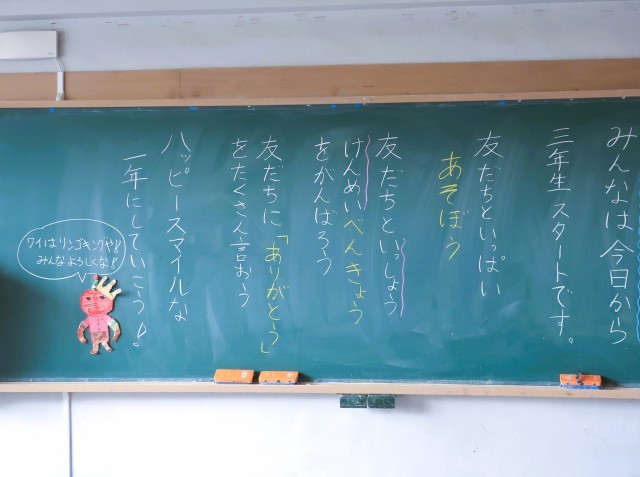 みんなは今日から
三年生スタートです。
友だちといっぱい
あそぼう
友だちといっしょう
けんめいべんきょう
をがんばろう
友だちに「ありがとう」
をたくさん言おう
ハッピースマイルな
一年にしていこう♪
ワイはリンゴキングや!!
みんなよろしくな!!